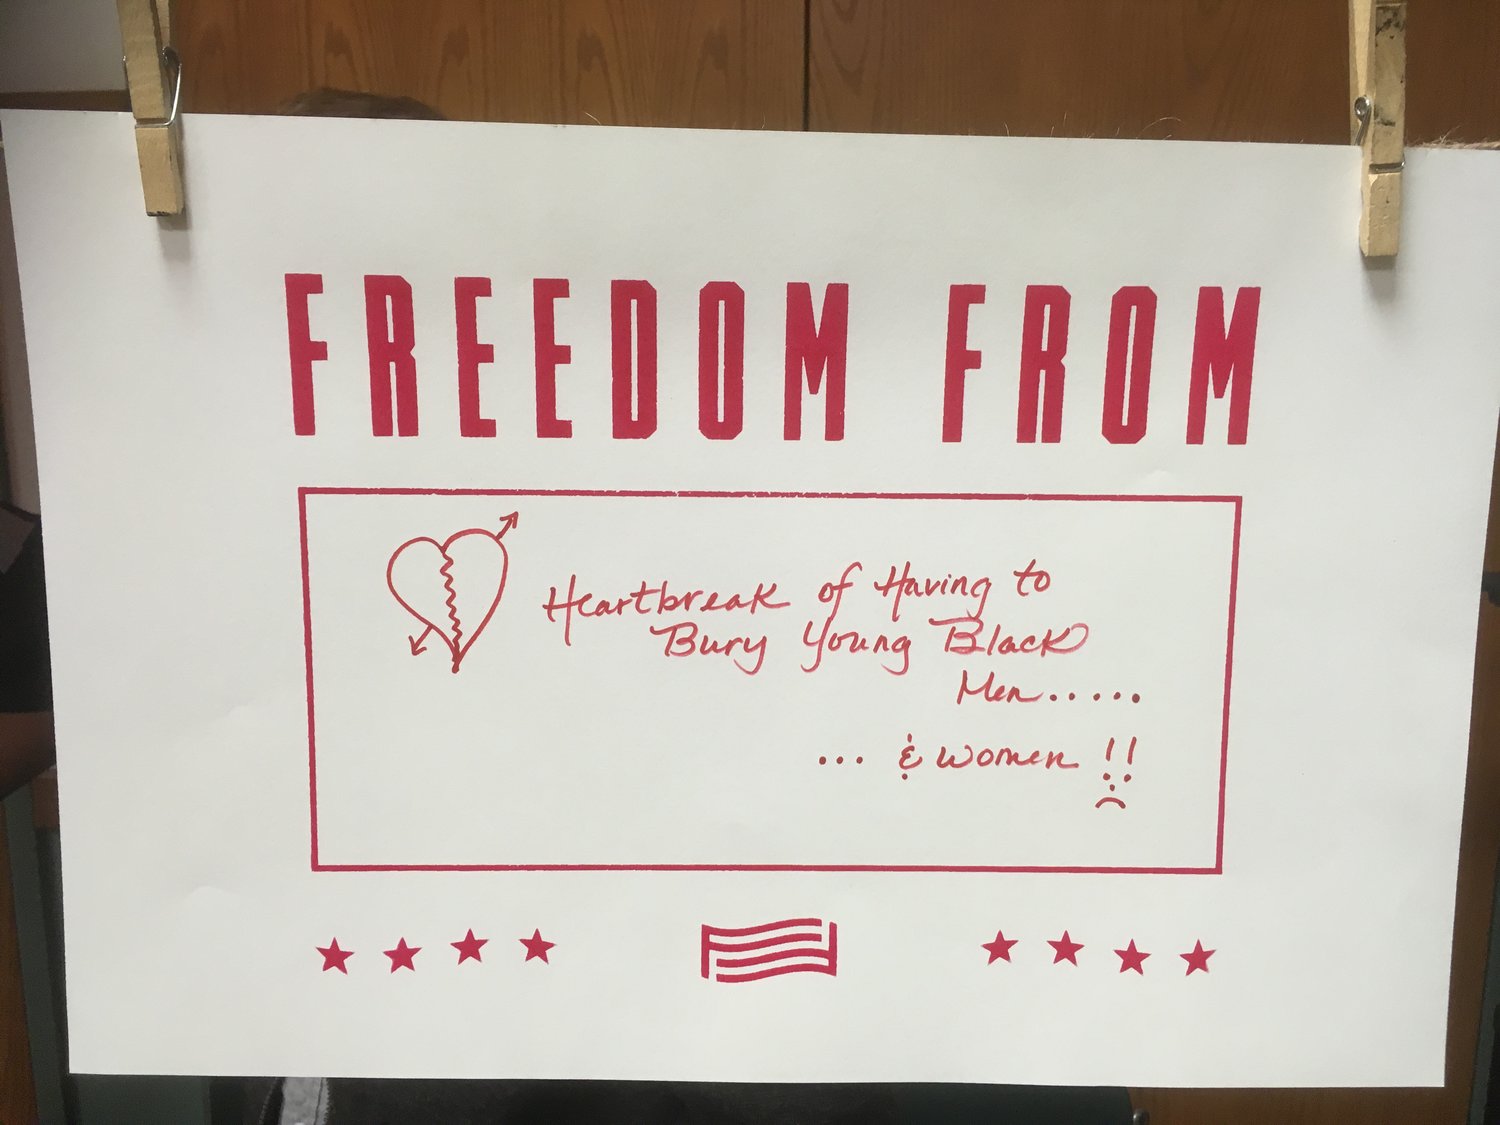 FREEDOM FROM
Heartbreak of Having to
Bury Young Black
Men.....
... & women !!